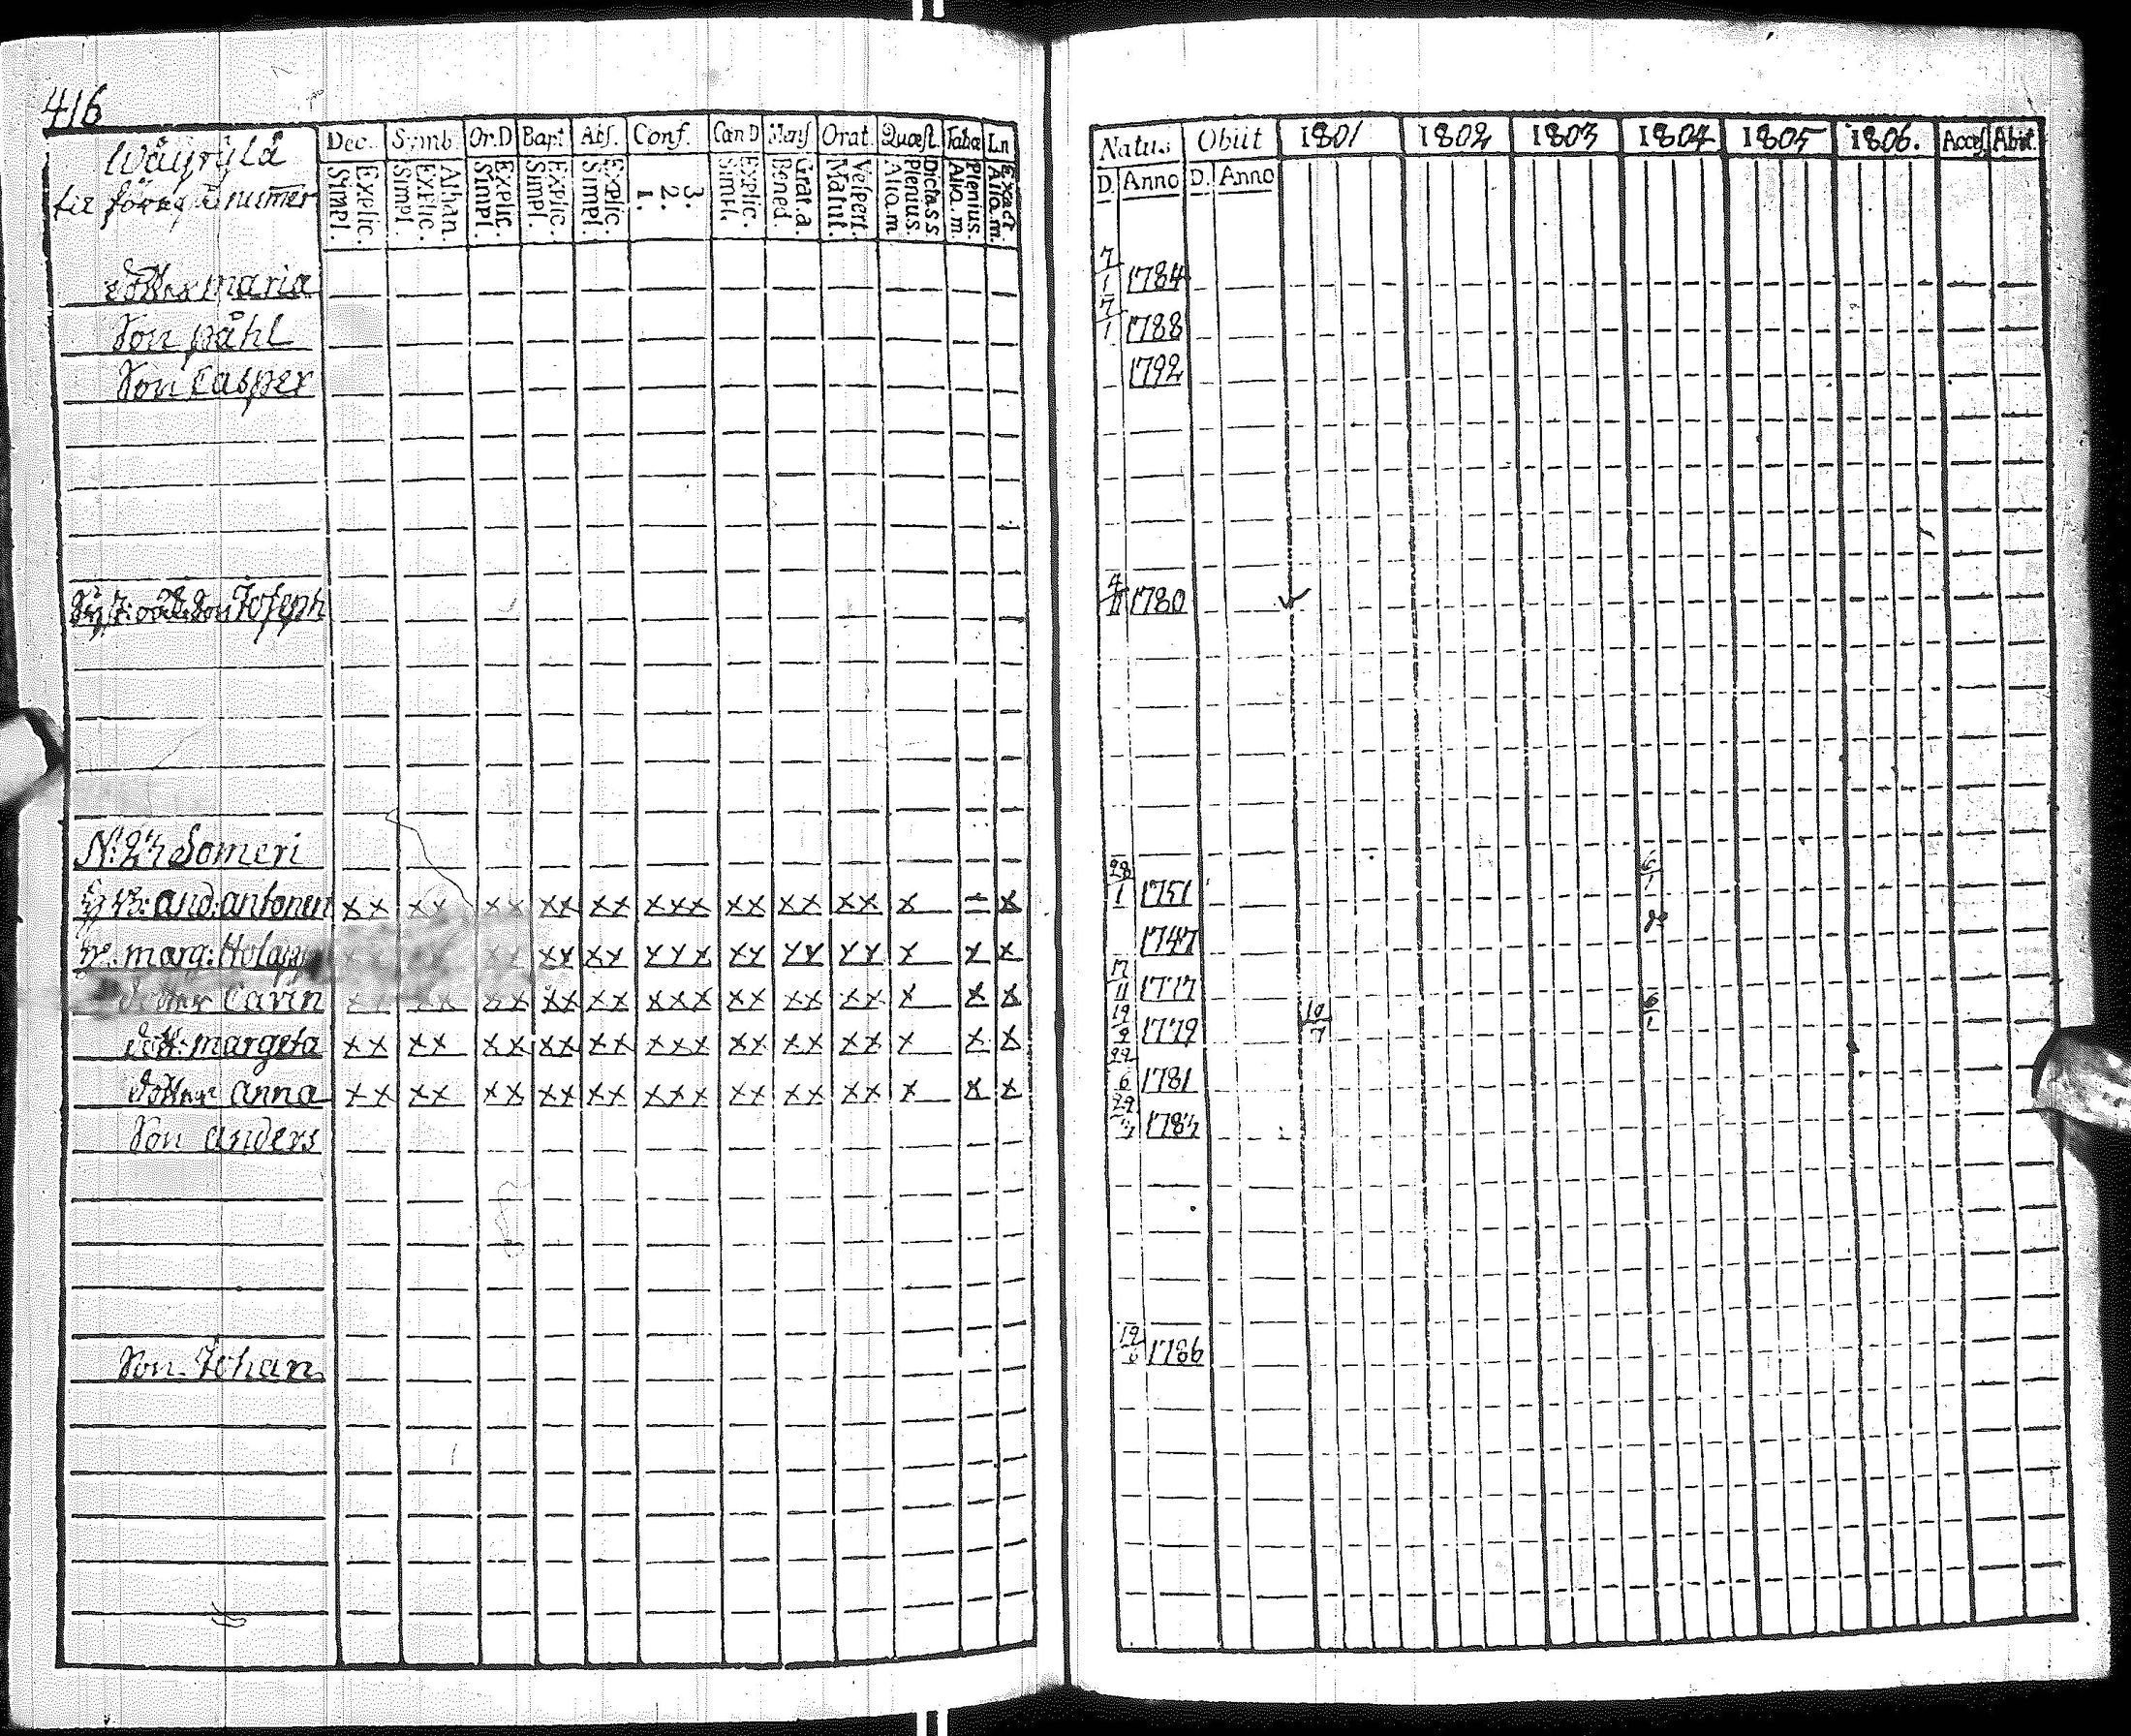 416
Wäyrylä
til förrige numer
Dec. Symb. Or.D Bapt Abs. Conf. Can D Mens Orat. Quæst. Tabæ Ln
Explic. Simpl. Athan. Explic. Simpl. Explic. Simpl. Explic. Simpl. Explic. Simpl. 3. 2. 1. Explic. Simpl. Grat. a. Bened. Vespert. Matut. Dictas s. Plenius. Alio. m. Plenius. Alio. m. Exact Alio. m.
Natus Obiit 1801 1802 1803 1804 1805 1806. Acces Abit.
D. Anno D. Anno
dotter maria 7/1 1784
Son påhl 7/1 1788
Son Casper 1792
Son Joseph 4/11 1780
Someri
and: antonen xx xx xx xx xx xxx xx xx xx x = x 28/1 1751 6/1
marg: xx xx xx xx xx xxx xx xx xx x x x 1747
dotter Carin xx xx xx xx xx xxx xx xx xx x x x 17/11 1777
dott: margeta xx xx xx xx xx xxx xx xx xx x x x 19/9 1779 10/7 6/1
dotter anna xx xx xx xx xx xxx xx xx xx x x x 22/6 1781
Son anders
Son Johan 1786